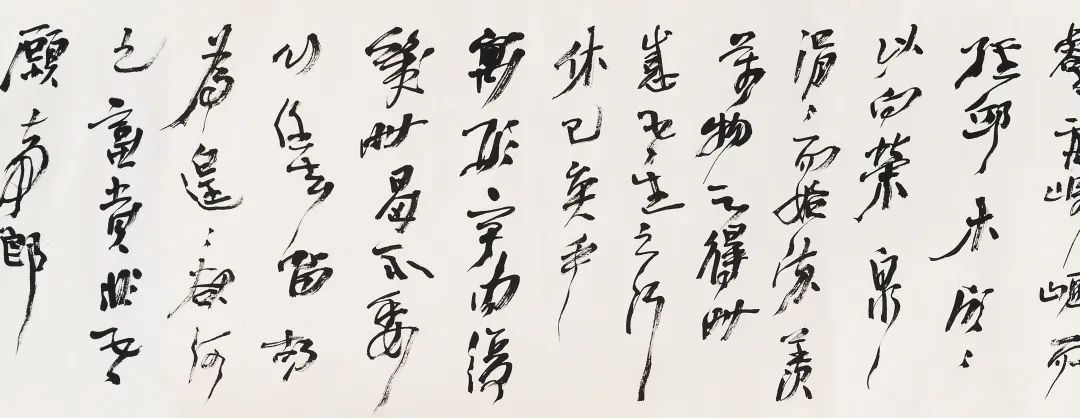 壑亦崎嶇而
經邱木欣〻
以向榮泉
涓〻而始流羨
萬物之得時
感吾生之行
休已矣乎
寓形宇內復
幾時曷不委
心任去留胡
為遑〻欲何
之富貴非吾
願帝鄉